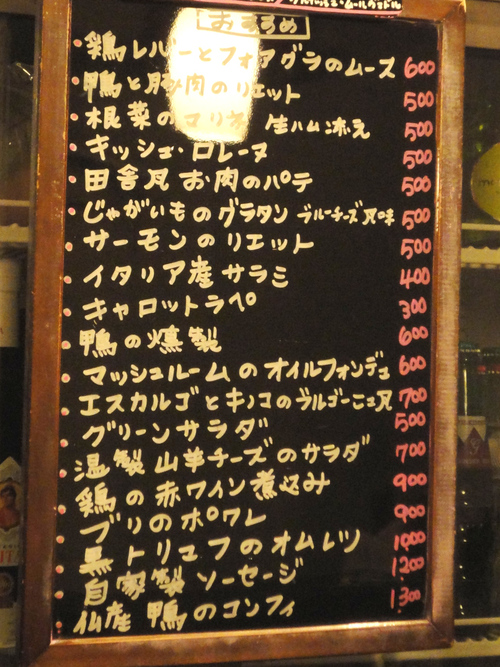 おすすめ
鶏レバーとフォアグラのムース 600
鴨と豚肉のリエット 500
根菜のマリネ 生ハム添え 500
キッシュ・ロレーヌ 500
田舎風お肉のパテ 500
じゃがいものグラタン ブルーチーズ風味 500
サーモンのリエット 500
イタリア産サラミ 400
キャロットラペ 300
鴨の燻製 600
マッシュルームのオイルフォンデュ 600
エスカルゴとキノコのブルゴーニュ風 700
グリーンサラダ 500
温製山羊チーズのサラダ 700
鶏の赤ワイン煮込み 900
ブリのポワレ 900
黒トリュフのオムレツ 1000
自家製ソーセージ 1200
仏産鴨のコンフィ 1300